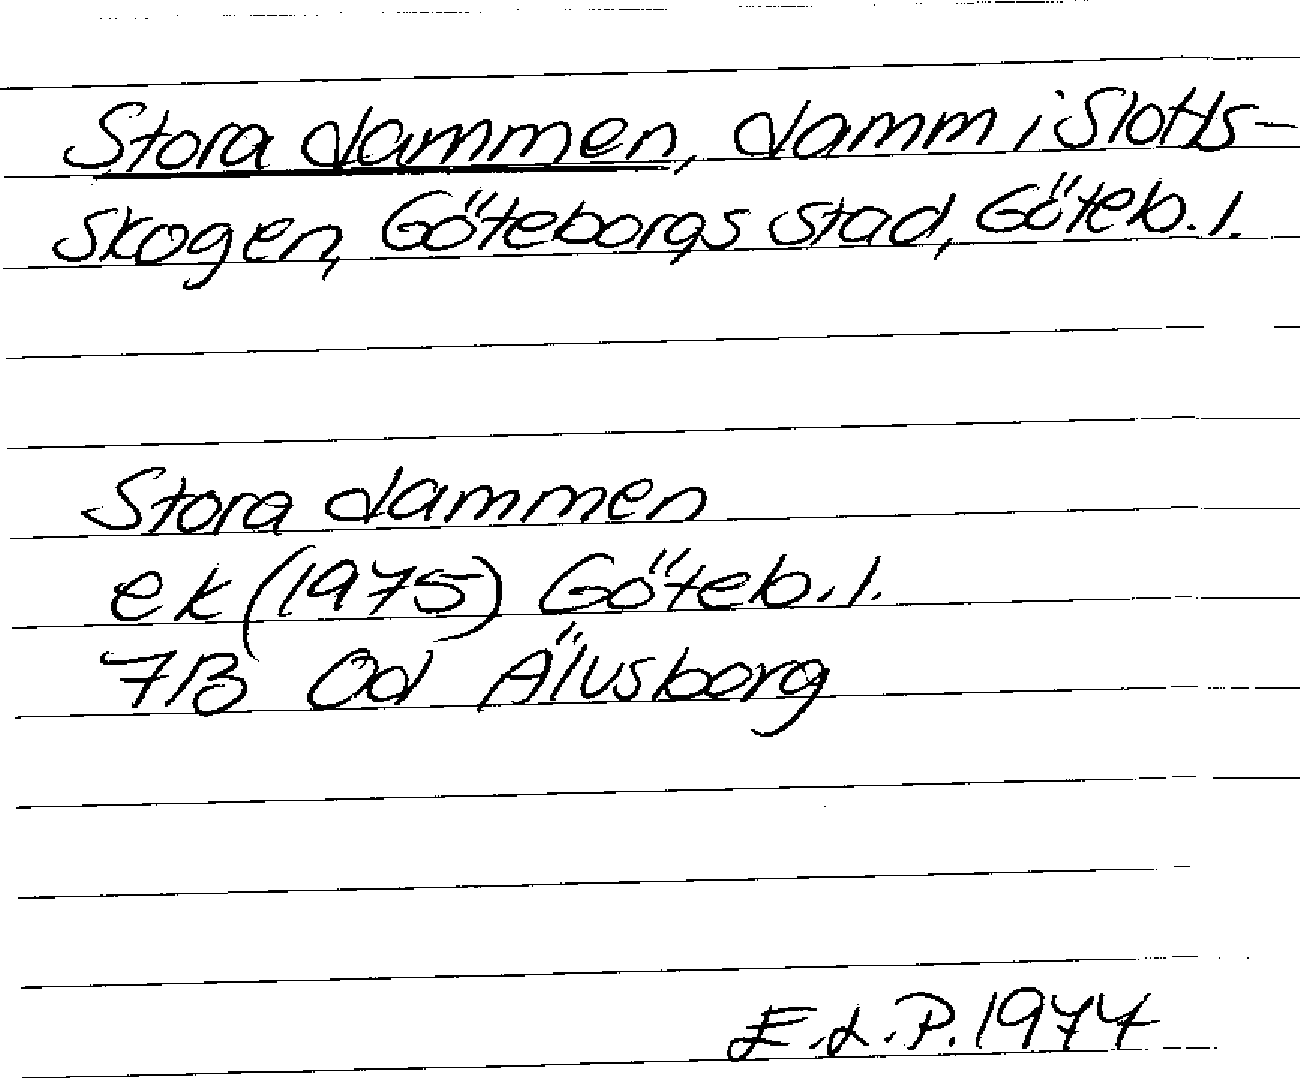 Stora dammen, damm i Slotts-
skogen, Göteborgs stad, Göteb. l.
Stora dammen
ek (1975) Göteb. l.
7B Od Älvsborg
E.L.P. 1977